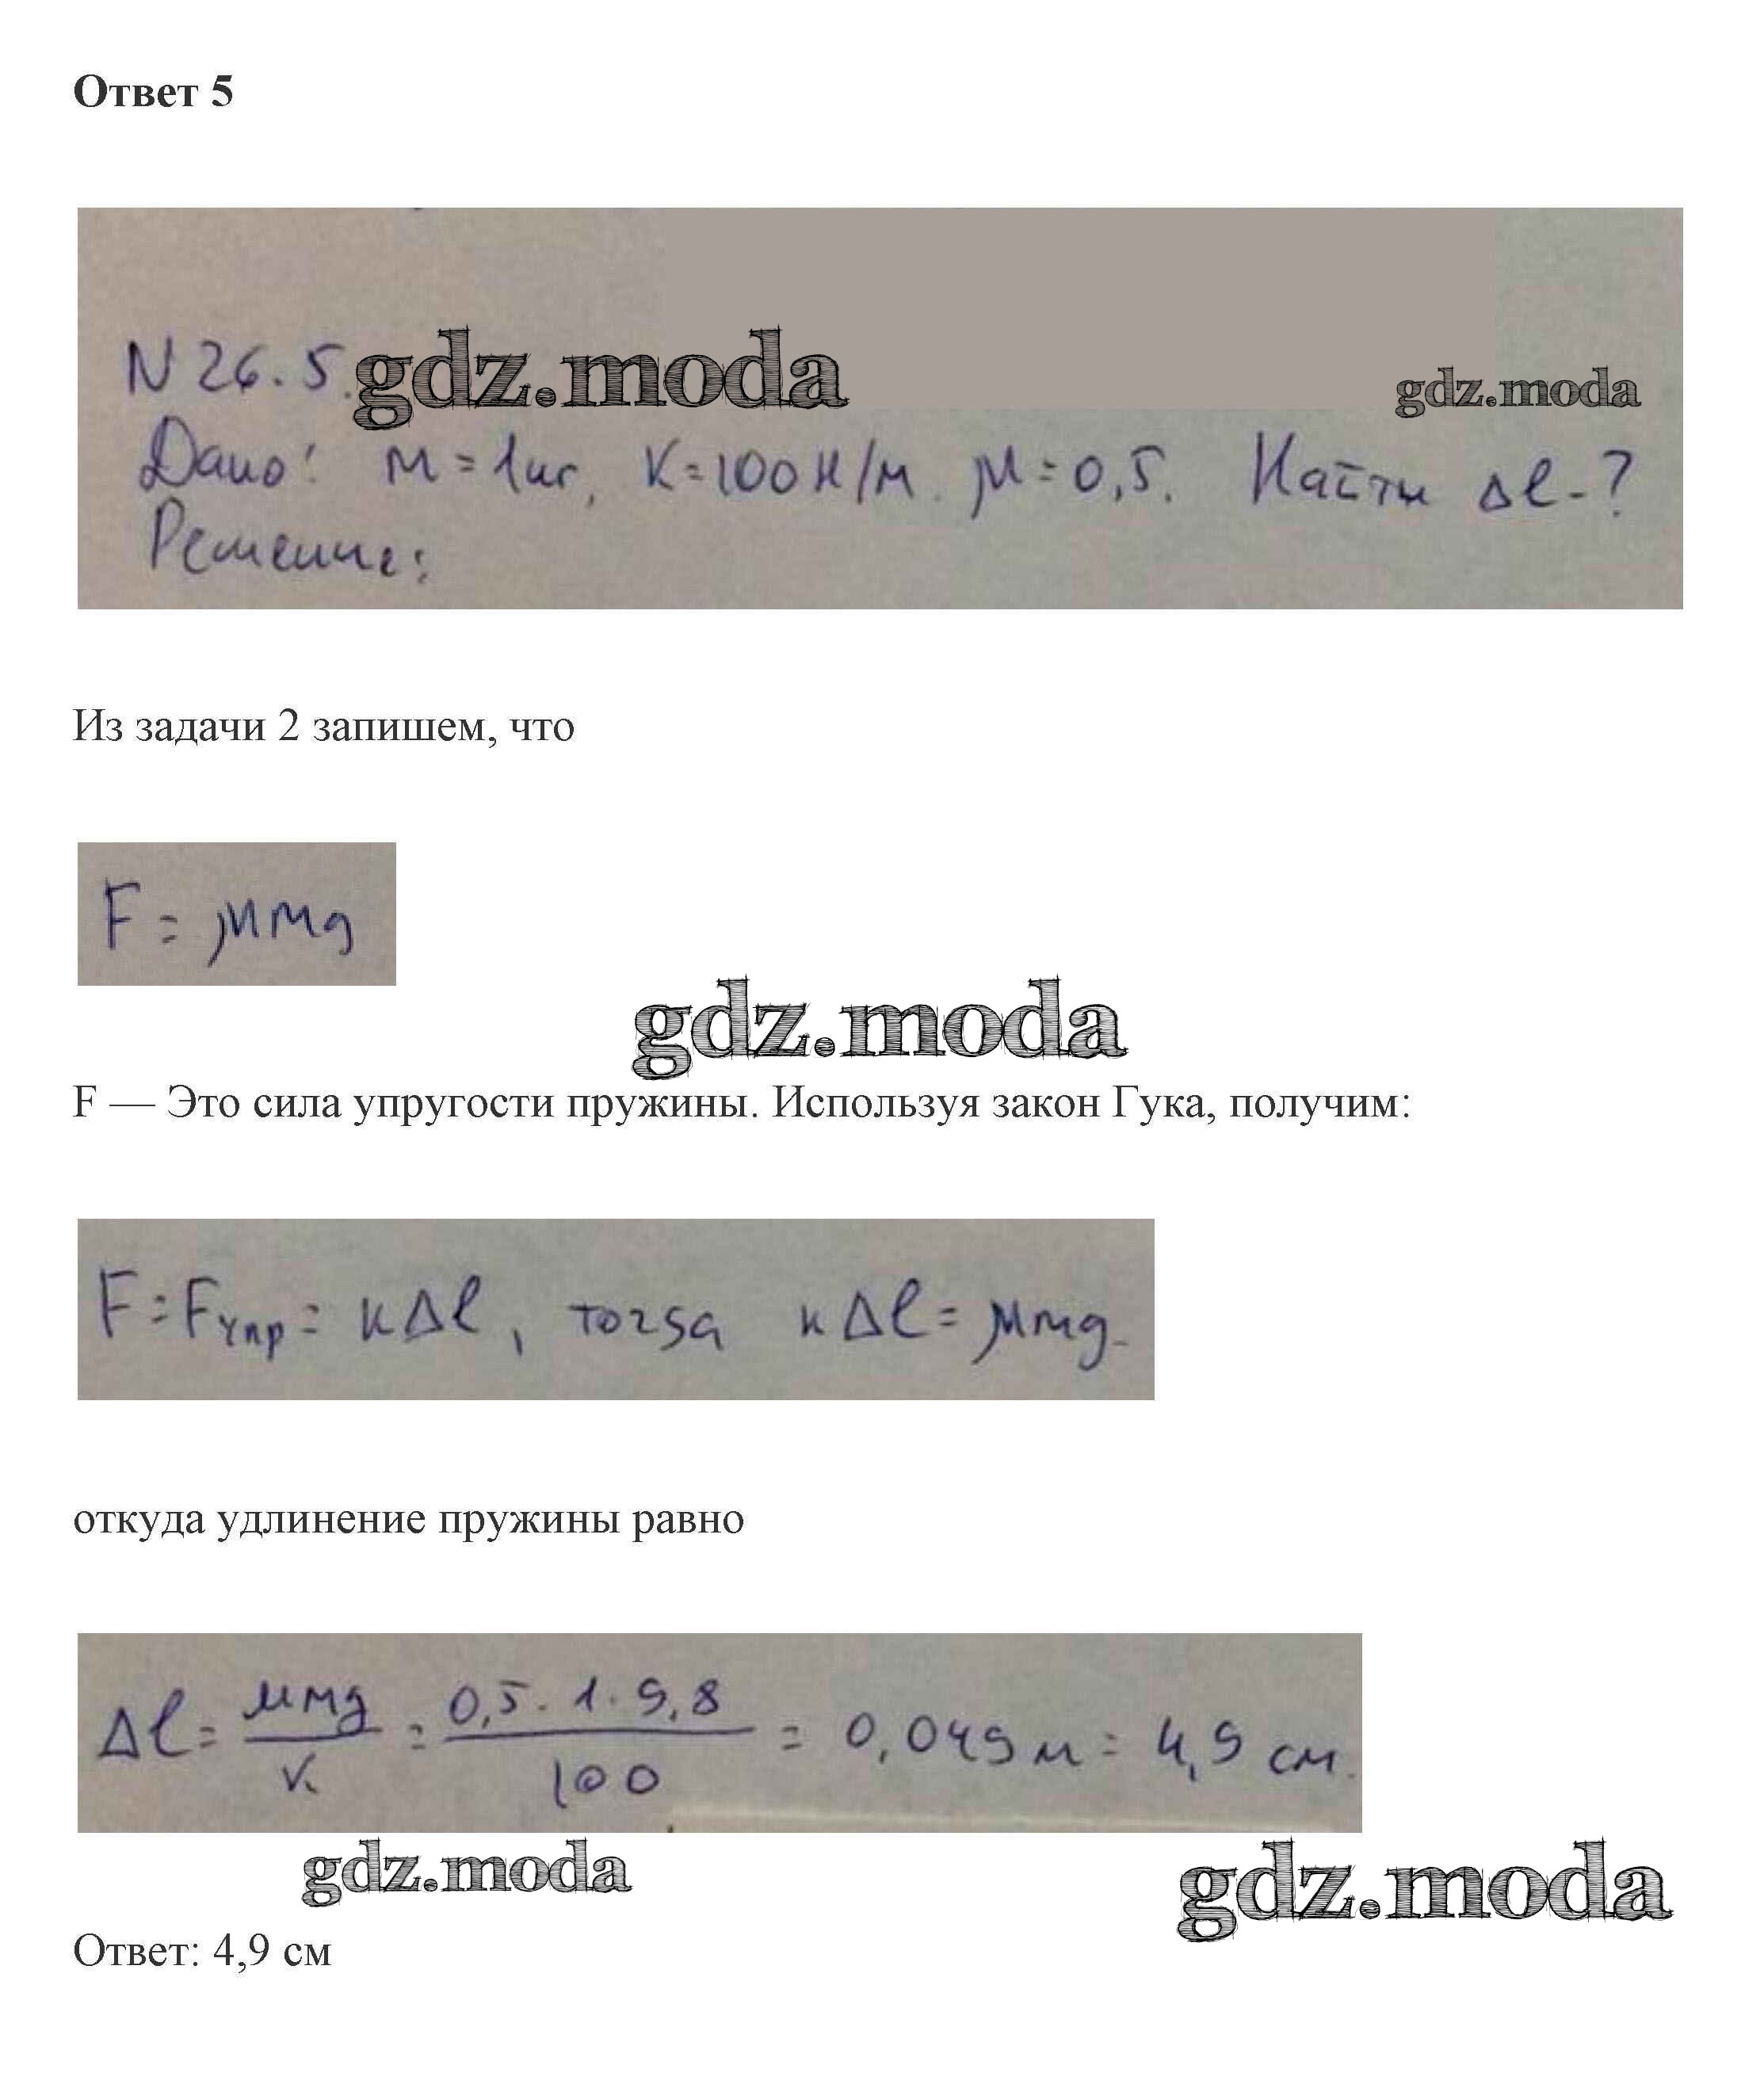 Ответ 5
N 26.5. gdz.moda
gdz.moda
Дано: m = 1 кг, K = 100 Н/м. μ = 0,5. Найти Δl - ?
Решение:
Из задачи 2 запишем, что
F = μmg
gdz.moda
F — Это сила упругости пружины. Используя закон Гука, получим:
F = Fупр = kΔl, тогда kΔl = μmg.
откуда удлинение пружины равно
Δl = μmg / k = 0,5 · 1 · 9,8 / 100 = 0,049 м = 4,9 см.
gdz.moda
gdz.moda
Ответ: 4,9 см